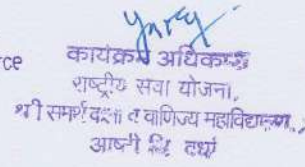 ce
कार्यक्रम अधिकारी
राष्ट्रीय सेवा योजना,
श्री समर्थ कला व वाणिज्य महाविद्यालय,
आष्टी जि. वर्धा